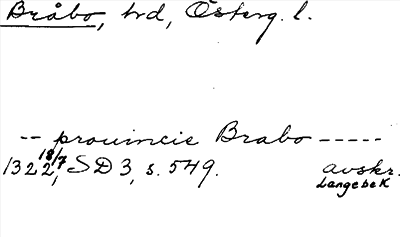 Bråbo, hrd, Österg. l.
-- prouincie Brabo -----
1322 18/7, SD 3, s. 549. avskr.
Langebek